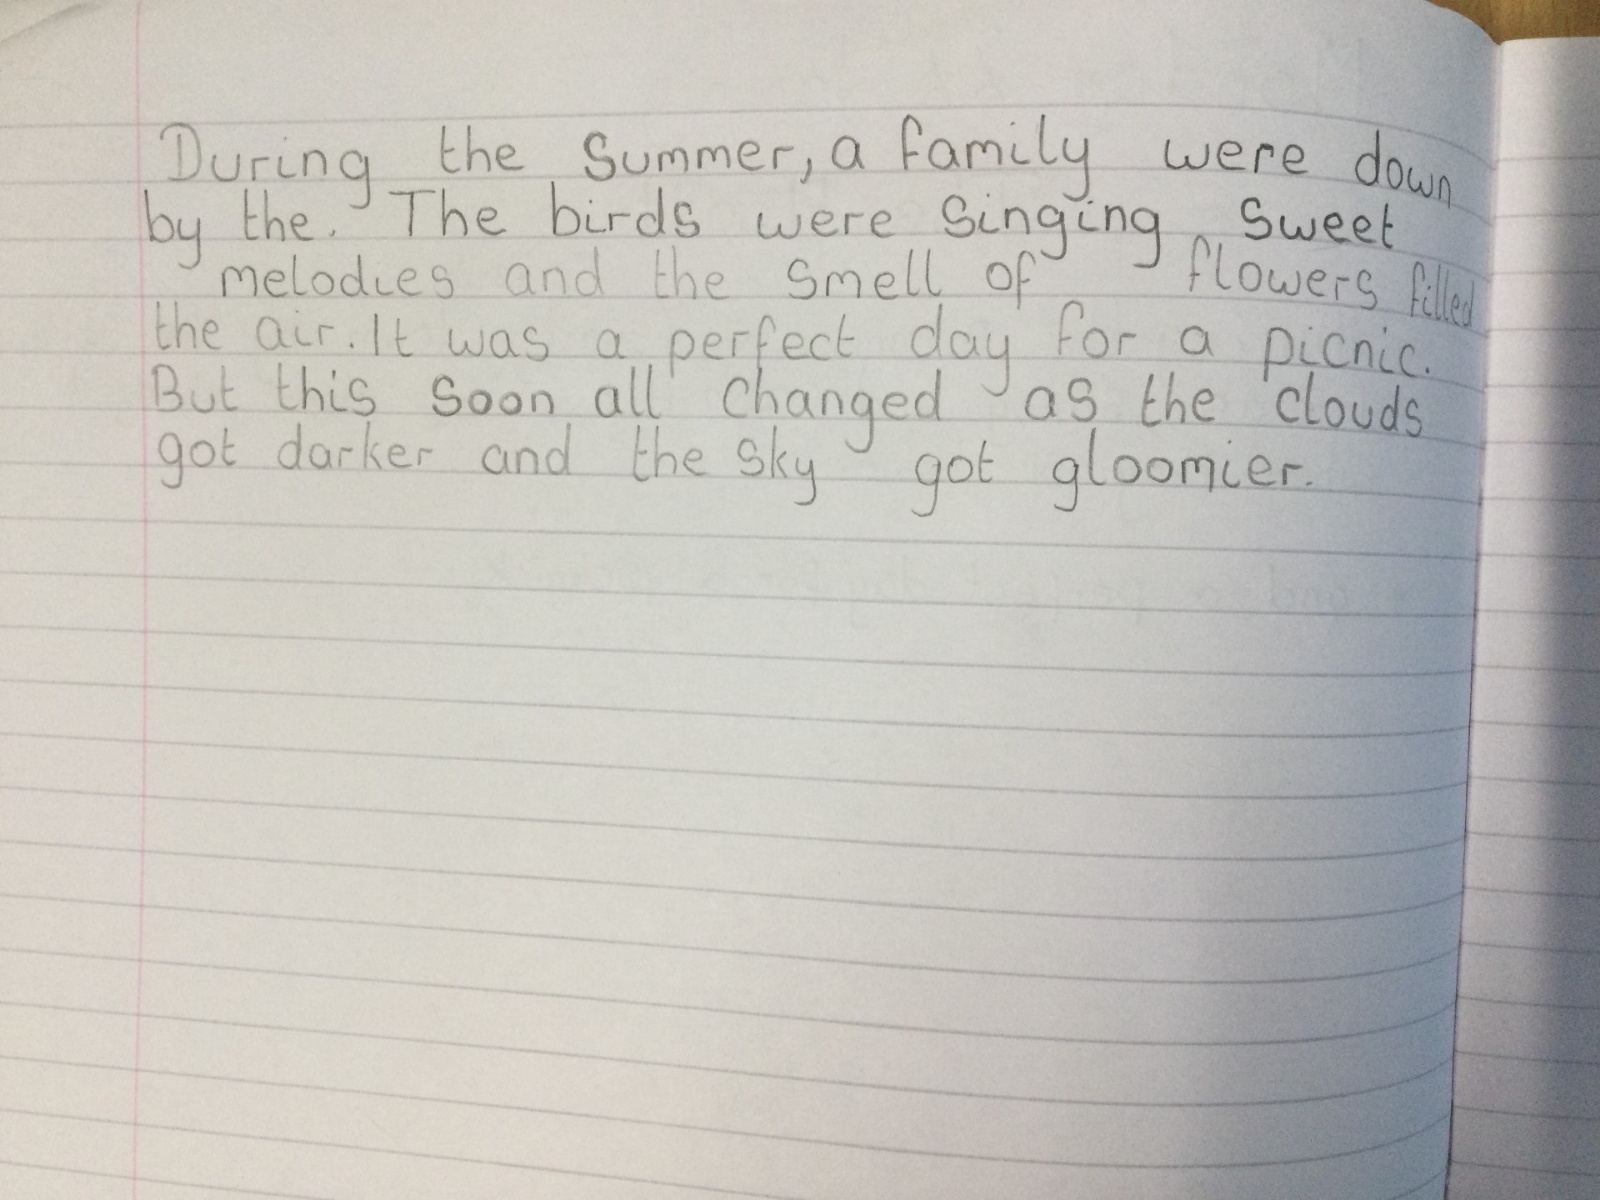 During the Summer, a family were down
by the. The birds were singing sweet
melodies and the smell of flowers filled
the air. It was a perfect day for a picnic.
But this soon all changed as the clouds
got darker and the sky got gloomier.